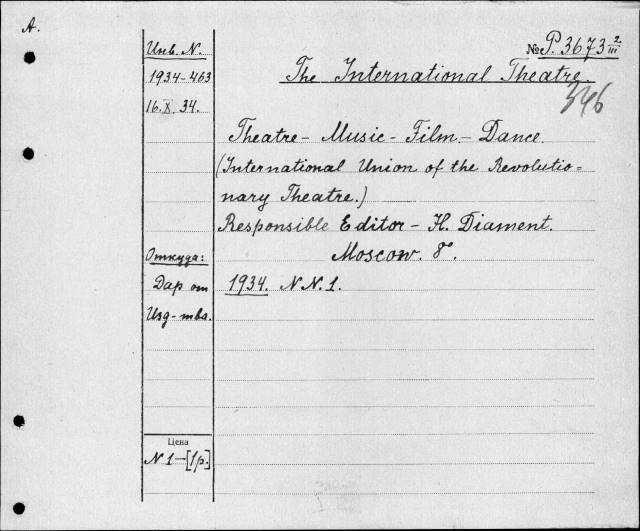 А.
Инв. N.
1934-463
16.X.34.
№ P. 3673 2/III
The International Theatre.
346
Theatre - Music - Film - Dance.
(International Union of the Revolutio=
nary Theatre.)
Responsible Editor - H. Diament.
Moscow. 8°.
Откуда:
Дар от
Изд-тва.
1934. N N. 1.
Цена
N 1 - [1р.]